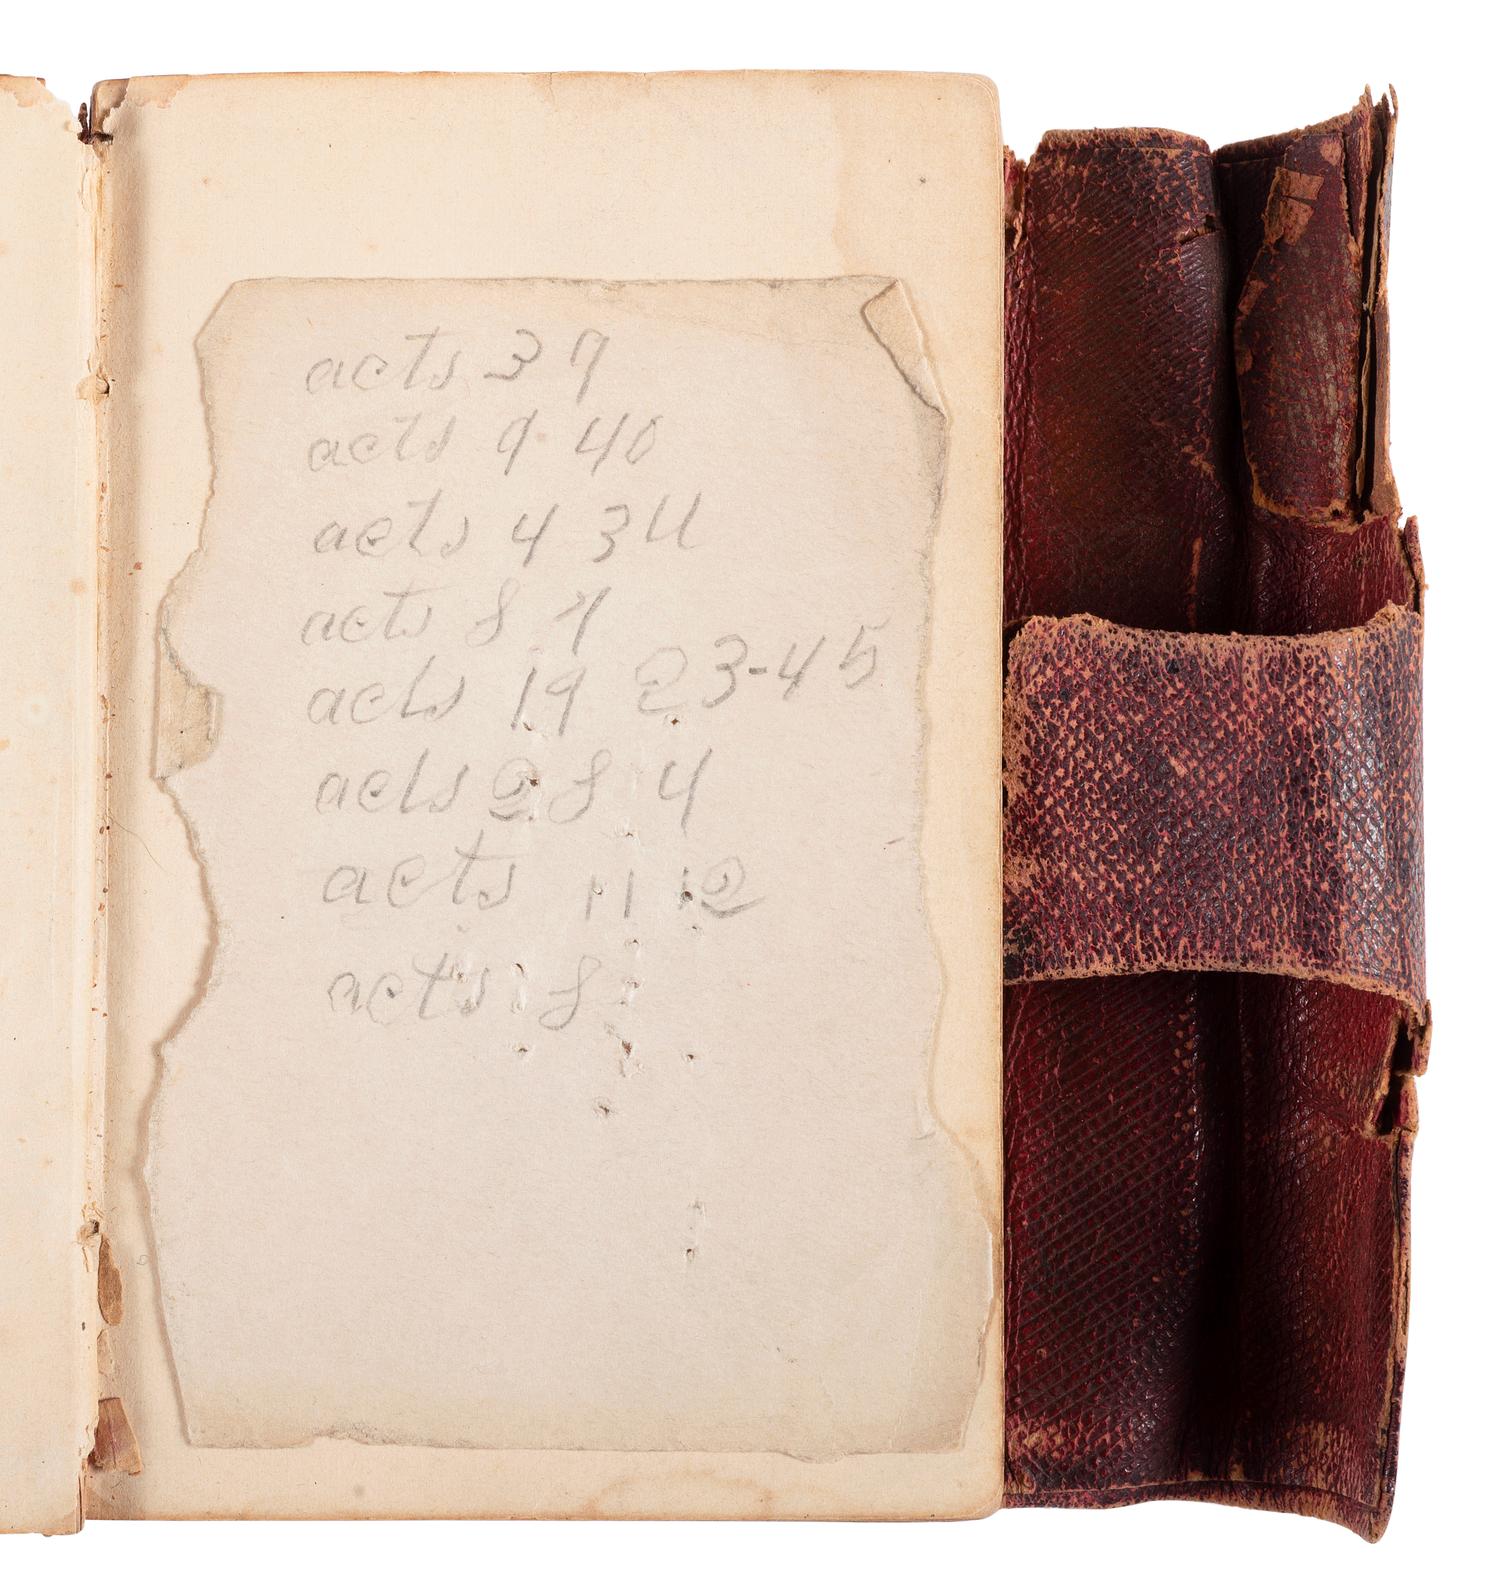 acts 3 7
acts 9 40
acts 4 34
acts 8
acts 19 23-45
acts 28 4
acts 11 12
acts 8